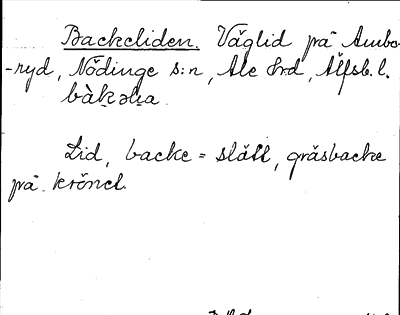 Backeliden. Väglid på Ambo-
-ryd, Nödinge s:n, Ale Hrd, Älfsb. l.
Lid, backe = slätt, gräsbacke
på krönet.